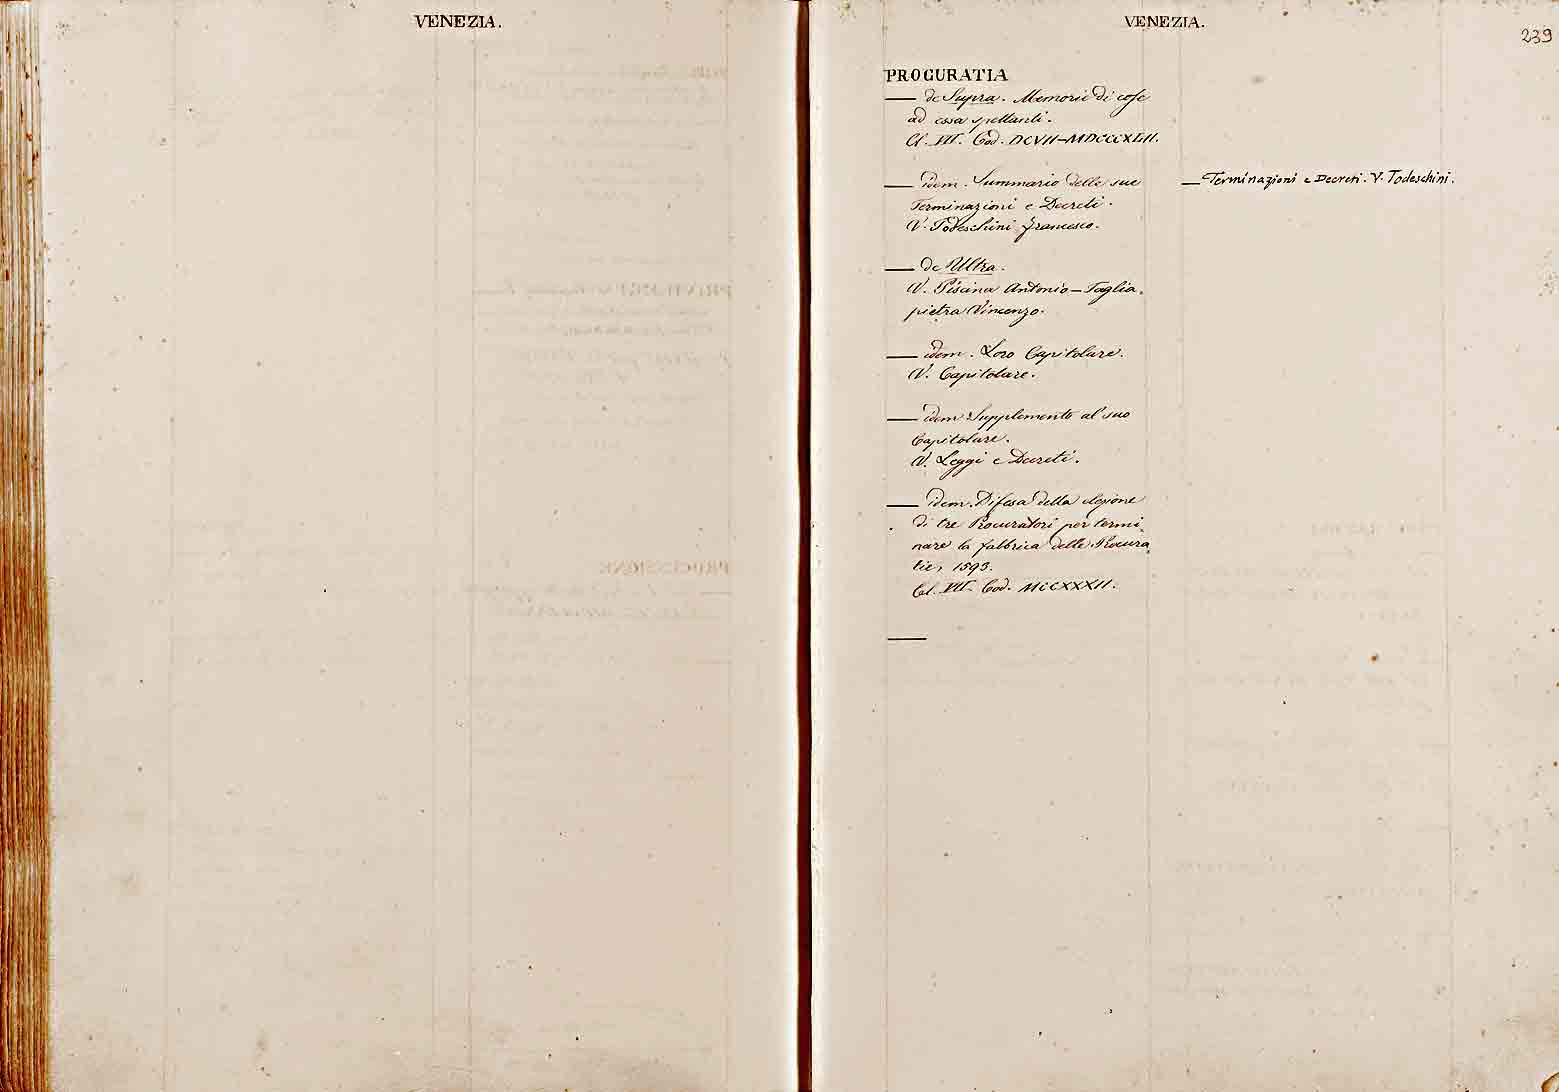 VENEZIA.
VENEZIA.
239
PROCURATIA
— de Supra. Memorie di cose
ad essa spettanti.
Cl. VII. Cod. DCVII-MDCCCXLII.
— idem. Summario delle sue
Terminazioni e Decreti.
V. Todeschini Francesco.
— Terminazioni e Decreti. V. Todeschini.
— de Ultra.
V. Pisana Antonio - Taglia-
pietra Vincenzo.
— idem. Loro Capitolare.
V. Capitolare.
— idem Supplemento al suo
Capitolare.
V. Leggi e Decreti.
— idem. Difesa della elezione
di tre Procuratori per termi-
nare la fabbrica delle Procura-
tie, 1593.
Cl. VII. Cod. MCCXXXII.
—